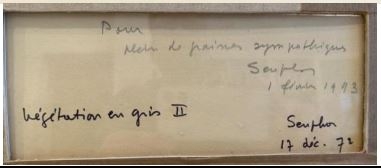 Pour
de graines sympathiques
Seuphor
1 février 1973
Végétation en gris II
Seuphor
17 déc. 72